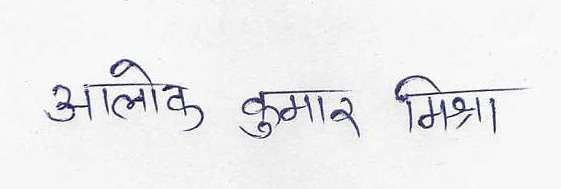 आलोक कुमार मिश्रा